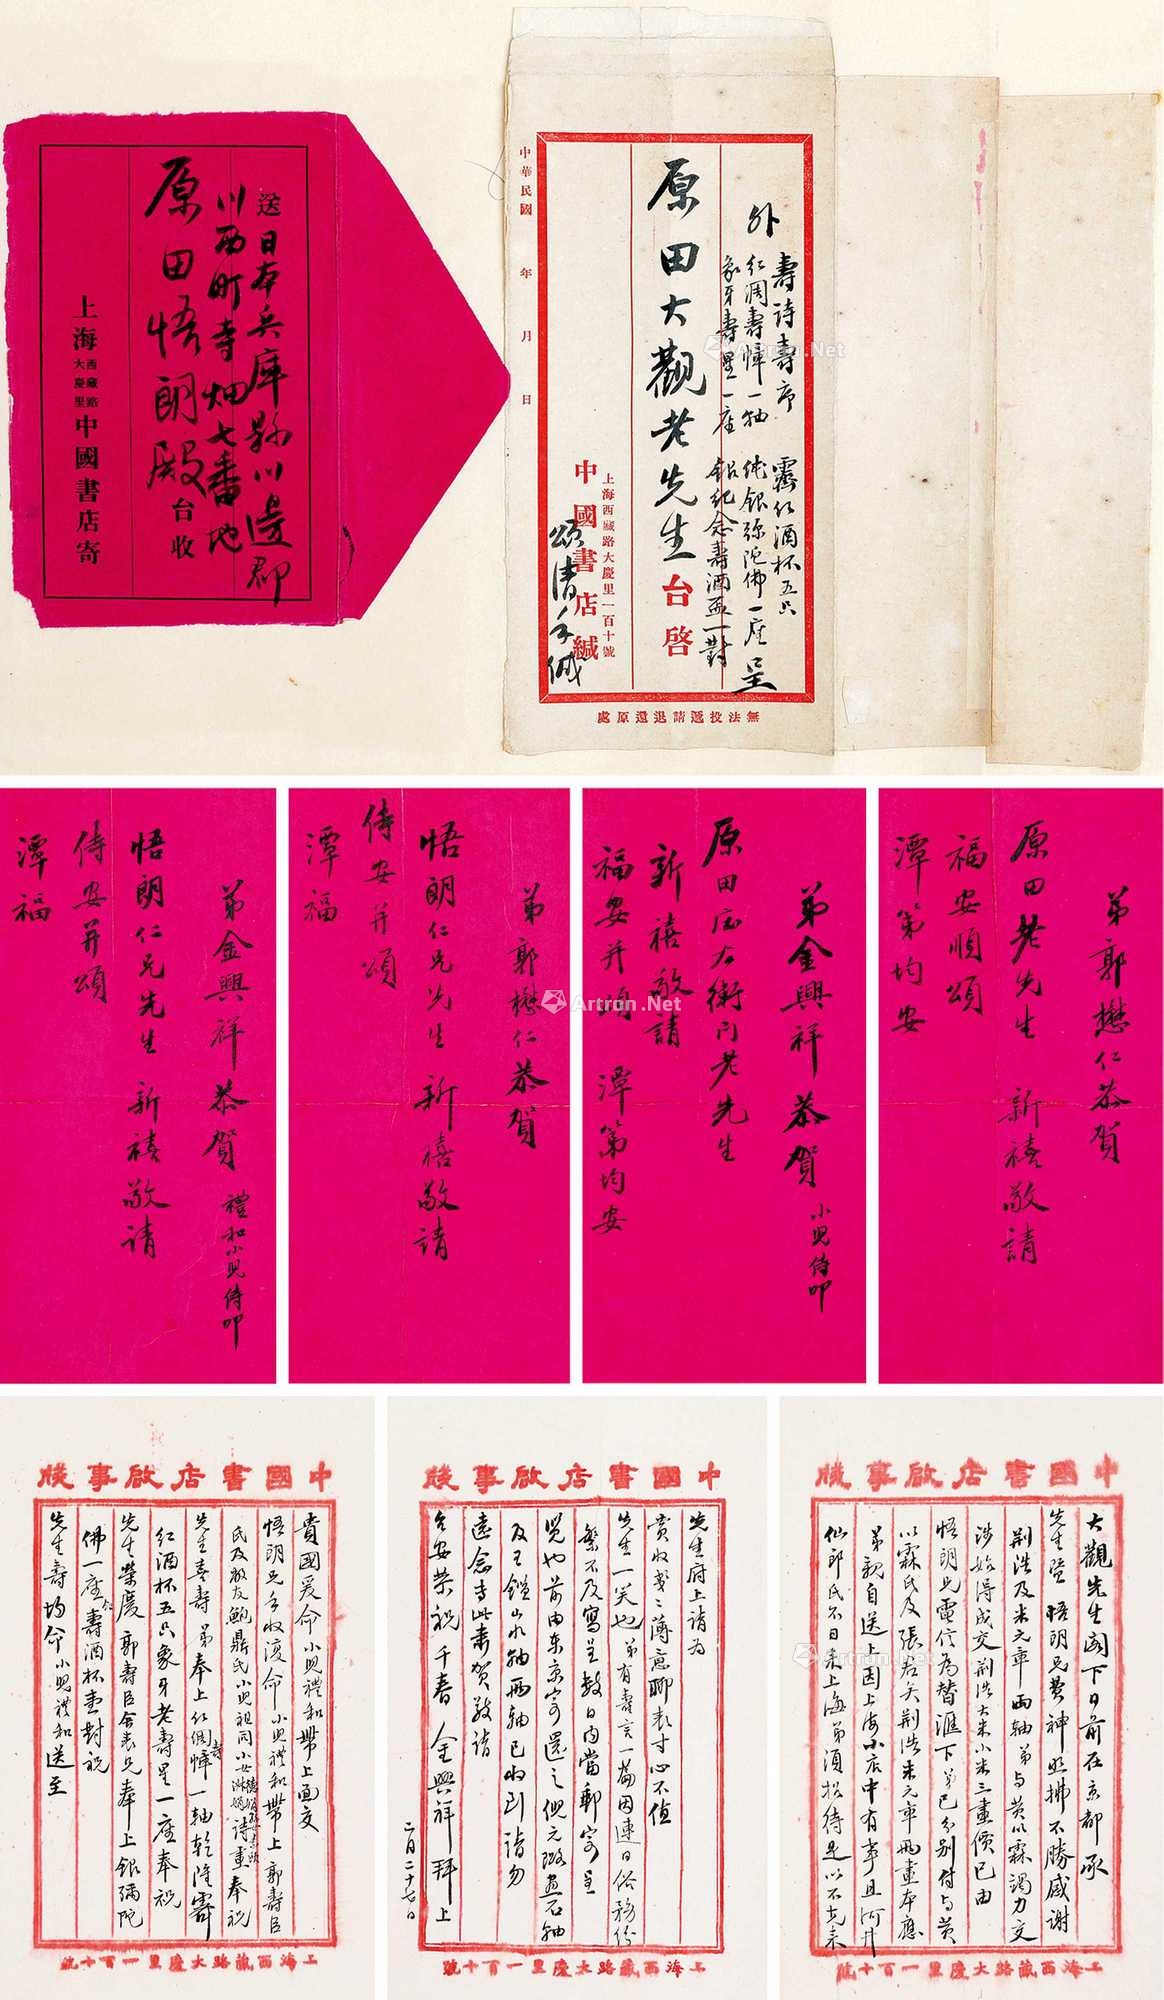 送日本兵庫縣川邊郡
川西町寺畑七番地
原田悟朗殿台收
上海西藏路大慶里中國書店寄
中華民國 年 月 日
外
壽詩壽序 霽紅酒杯五只
紅綢壽幛一軸 純銀弥陀佛一座 呈
象牙壽星一座 銀紀念壽酒盃一對
原田大觀老先生台啓
上海西藏路大慶里一百十號
中國書店緘
頌清手緘
無法投遞請退還原處
弟郭懋仁恭賀
原田老先生 新禧敬請
福安順頌
潭第均安
弟金興祥恭賀 小兒侍叩
原田庄左衛门老先生
新禧敬請
福安并頌 潭第均安
弟郭懋仁恭賀
悟朗仁兄先生 新禧敬請
侍安并頌
潭福
弟金興祥恭賀 禮和小兒侍叩
悟朗仁兄先生 新禧敬請
侍安并頌
潭福
中國書店啟事牋
大觀先生閣下日前在京都承
先生暨 悟朗兄費神照拂不勝感谢
荆浩及米元章两轴弟与黄以霖竭力交
涉始得成交荆浩大米小米三畫價已由
悟朗兄電信為替滙下弟已分别付与黄
以霖氏及張君矣荆浩米元章两畫本應
弟親自送上因上海小店中有事且河井
仙郎氏不日來上海弟須招待是以不克来
上海西藏路大慶里一百十號
中國書店啟事牋
貴國爰命小兒禮和带上面交
悟朗兄手收復命小兒禮和带上郭壽臣
氏及敝友鮑鼎氏小兒祖同小女淋媳詩畫奉祝
先生喜壽弟奉上红绸壽幛一轴乾隆霽
红酒杯五只象牙老壽星一座奉祝
先生榮慶郭壽臣舍表兄奉上銀彌陀
佛一座銀壽酒杯壹對祝
先生壽均命小兒禮和送至
上海西藏路大慶里一百十號
中國書店啟事牋
先生府上请为
賞收戔戔薄意聊表寸心不值
先生一笑也弟有壽言一篇因連日俗務纷
繁不及寫呈數日内當郵寄呈
览也前由东京寄還之倪元璐画石轴
及王鑑山水轴两轴已收到请勿
遠念专此肃贺敬请
台安荣祝千春 金興祥拜上
二月二十七日
上海西藏路大慶里一百十號
Artron.Net
Artron.Net
Artron.Net